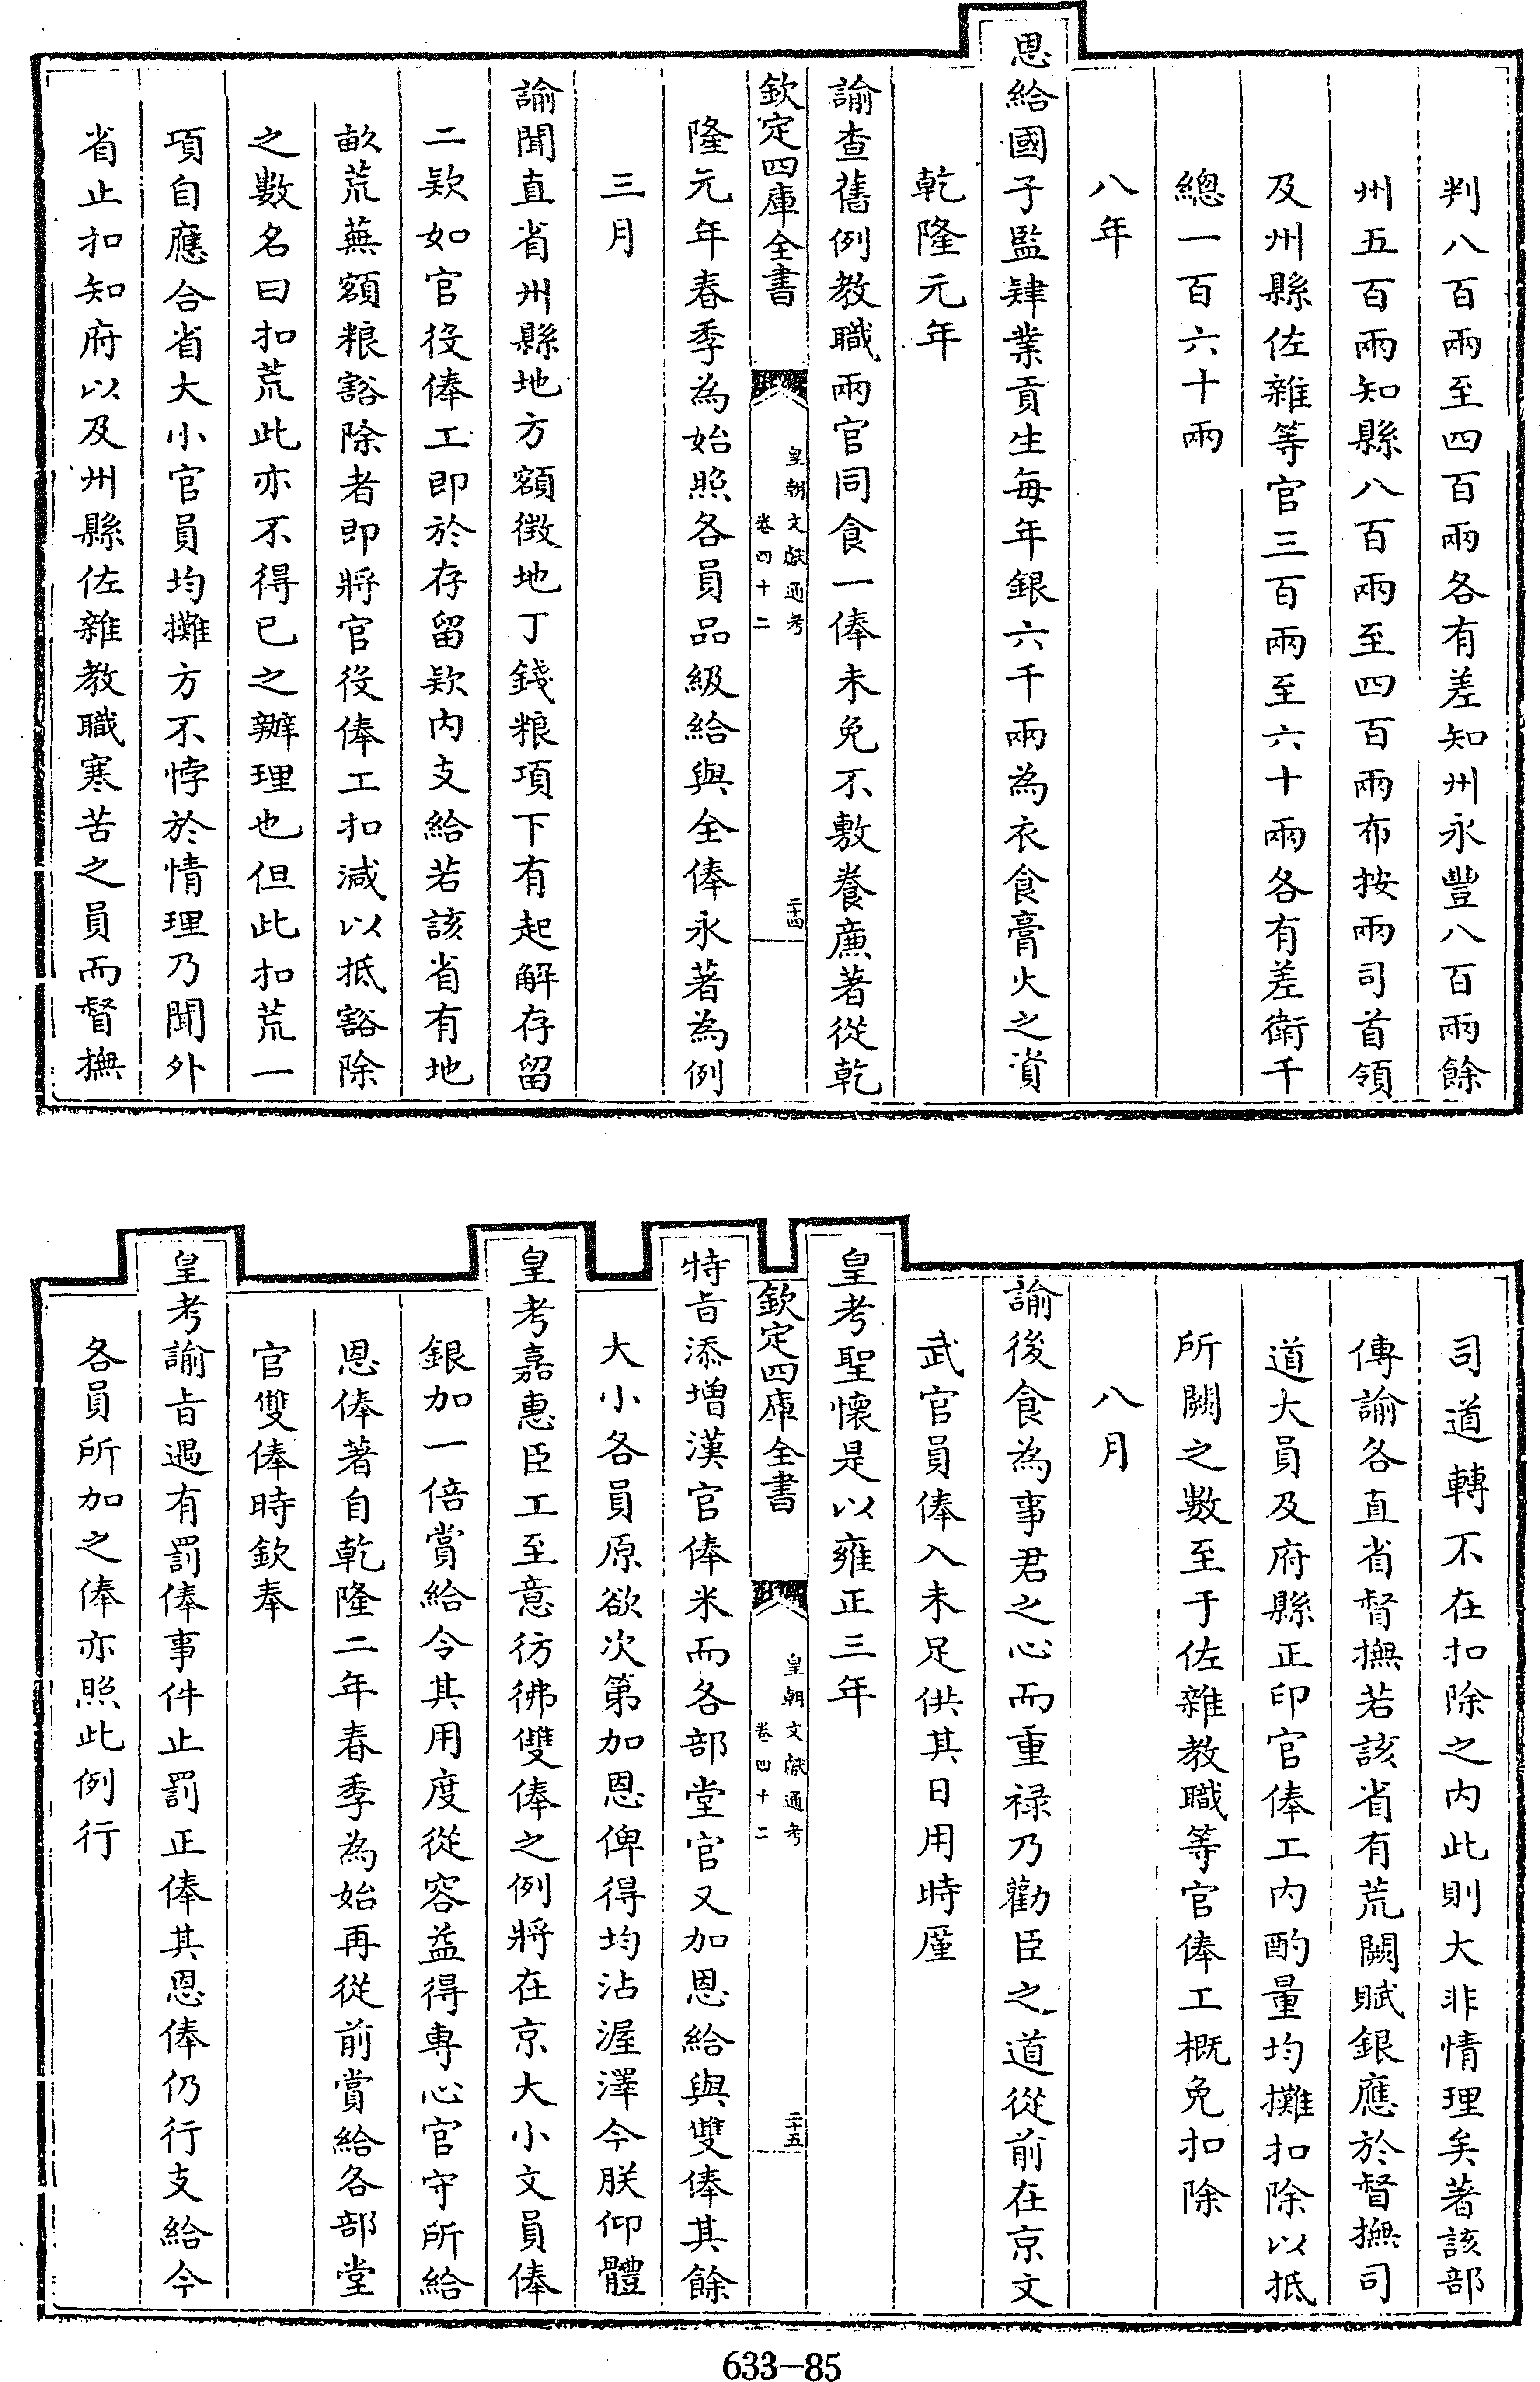 判八百兩至四百兩各有差知州永豐八百兩餘
州五百兩知縣八百兩至四百兩布按兩司首領
及州縣佐雜等官三百兩至六十兩各有差衛千
總一百六十兩
八年
恩給國子監肄業貢生每年銀六千兩為衣食膏火之資
乾隆元年
諭查舊例教職兩官同食一俸未免不敷養廉著從乾
欽定四庫全書
皇朝文獻通考
卷四十二
二十四
隆元年春季為始照各員品級給與全俸永著為例
三月
諭聞直省州縣地方額徴地丁錢粮項下有起解存留
二欵如官役俸工即於存留欵内支給若該省有地
畝荒蕪額粮豁除者即將官役俸工扣減以抵豁除
之數名曰扣荒此亦不得已之辦理也但此扣荒一
項自應合省大小官員均攤方不悖於情理乃聞外
省止扣知府以及州縣佐雜教職寒苦之員而督撫
司道轉不在扣除之内此則大非情理矣著該部
傳諭各直省督撫若該省有荒闕賦銀應於督撫司
道大員及府縣正印官俸工内酌量均攤扣除以抵
所闕之數至于佐雜教職等官俸工概免扣除
八月
諭後食為事君之心而重禄乃勸臣之道從前在京文
武官員俸入未足供其日用時厪
皇考聖懷是以雍正三年
欽定四庫全書
皇朝文獻通考
卷四十二
二十五
特旨添增漢官俸米而各部堂官又加恩給與雙俸其餘
大小各員原欲次第加恩俾得均沾渥澤今朕仰體
皇考嘉惠臣工至意彷彿雙俸之例將在京大小文員俸
銀加一倍賞給令其用度從容益得専心官守所給
恩俸著自乾隆二年春季為始再從前賞給各部堂
官雙俸時欽奉
皇考諭旨遇有罰俸事件止罰正俸其恩俸仍行支給今
各員所加之俸亦照此例行
633-85